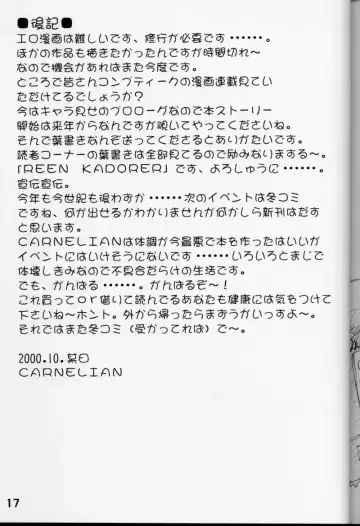 ■後記
エロ漫画は難しいです、修行が必要です‥‥‥。
ほかの作品も描きたかったんですが時間切れ～
なので機会があればまた今度です。
ところで皆さんコンプティークの漫画連載見てい
ただけてるでしょうか？
今はキャラ見せのプロローグなので本ストーリー
開始は来年からなんですが覗いてやってくださいね。
そんで葉書きなんぞ送ってくださるとありがたいです。
読者コーナーの葉書きは全部見てるので励みなりまする～。
「REEN KADORER」です、よろしゅうに‥‥‥。
宣伝宣伝。
今年も今世紀も後わずか‥‥‥次のイベントは冬コミ
ですね、何が出せるかわかりませんが何かしら新刊はだす
と思います。
CARNELIANは体調が今最悪で本を作ったはいいが
イベントにはいけそうにないです‥‥‥いろいろとまじで
体壊しきみなので不具合だらけの生活です。
でも、がんばる‥‥‥。がんばるぞ～！
これ買ってor借りて読んでるあなたも健康には気をつけて
下さいね～ホント。外から帰ったらまずうがいっすよ～。
それではまた冬コミ（受かってれば）で～。
2000.10.某日
CARNELIAN
17